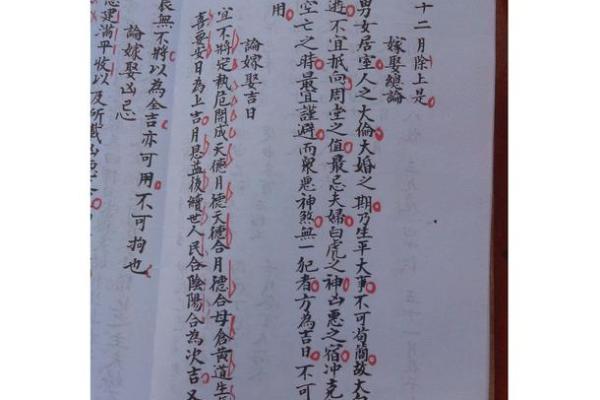 十二月除上是
嫁娶總論
男女居室人之大倫大婚之期乃生平大事不可苟簡故大
不宜抵向周堂之值最忌夫婦白虎之神凶惡之宿冲克
空亡之時最宜謹避而衆惡神煞無一犯者方為吉日不可
用
論嫁娶吉日
宜不將定執危開成天德月德天德合月德合母倉黃道生
喜要安日為上吉月恩益後續世人民合陰陽合為次吉又
無不將以為全吉亦可用不可拘也
論嫁娶凶忌
建滿平收以及所